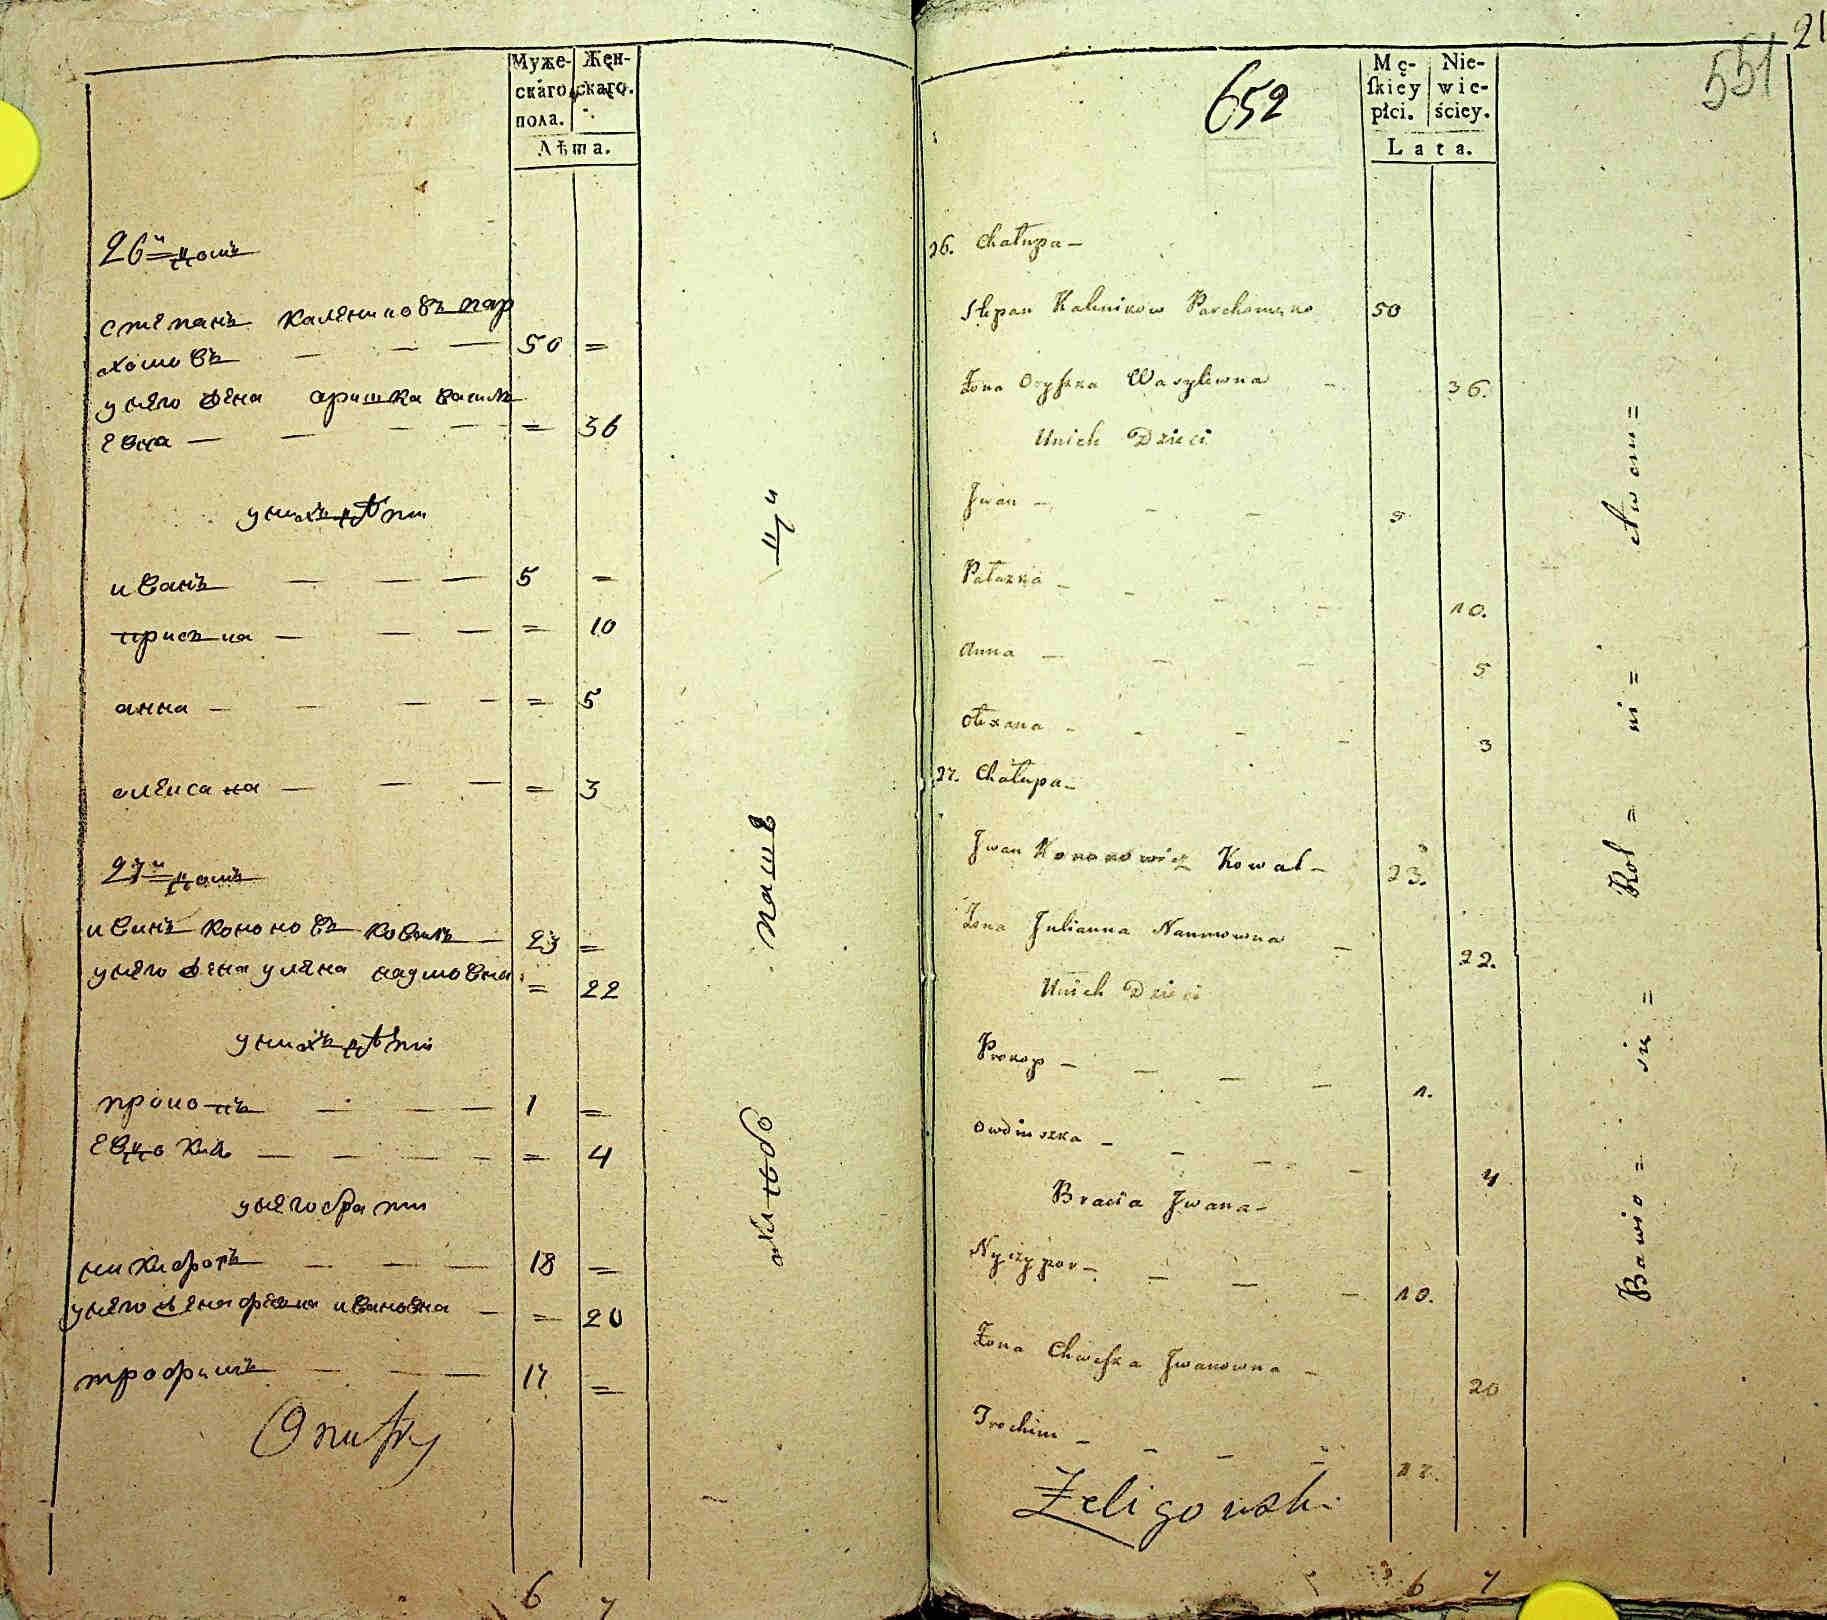 Муже-
скаго
пола.
Жен-
скаго.
Лѣта.
26й домъ
степанъ калениковъ пар
хомовъ — — — 50 =
унего жена аришка василь
евна — — — — = 36
унихъ дѣти
иванъ — — — 5 =
приська — — — = 10
анна — — — — = 5
алексана — — — = 3
27й домъ
иванъ кононовъ коваль — 23 =
унего жена уляна наумовна = 22
унихъ дѣти
прокопъ — — — 1 =
евдокия — — — — = 4
унего брати
никифоръ — — — 18 =
унего жена феська ивановна — = 20
трофимъ — — — 17 =
6 7
652
Mę-
ſkiey
płci.
Nie-
wie-
ściey.
Lata.
551
21
26. Chałupa —
Stepan Kalenikow Parchomenko 50
Żona Oryszka Wasylewna — 36.
Unich Dzieci
Jwan — — — 5
— — — — 10.
Anna — — — 5
Olexana — — — — 3
27. Chałupa —
Jwan Kononowicz Kowal — 23.
Żona Julianna Naumowna — 22.
Unich Dzieci
Prokop — — — — 1.
Owdiuszka — — — — 4
Bracia Jwana —
Nyczypor — — — — 10.
Żona Chweſka Jwanowna — 20
Trochim — — — — 17.
Żeligowski
6 7